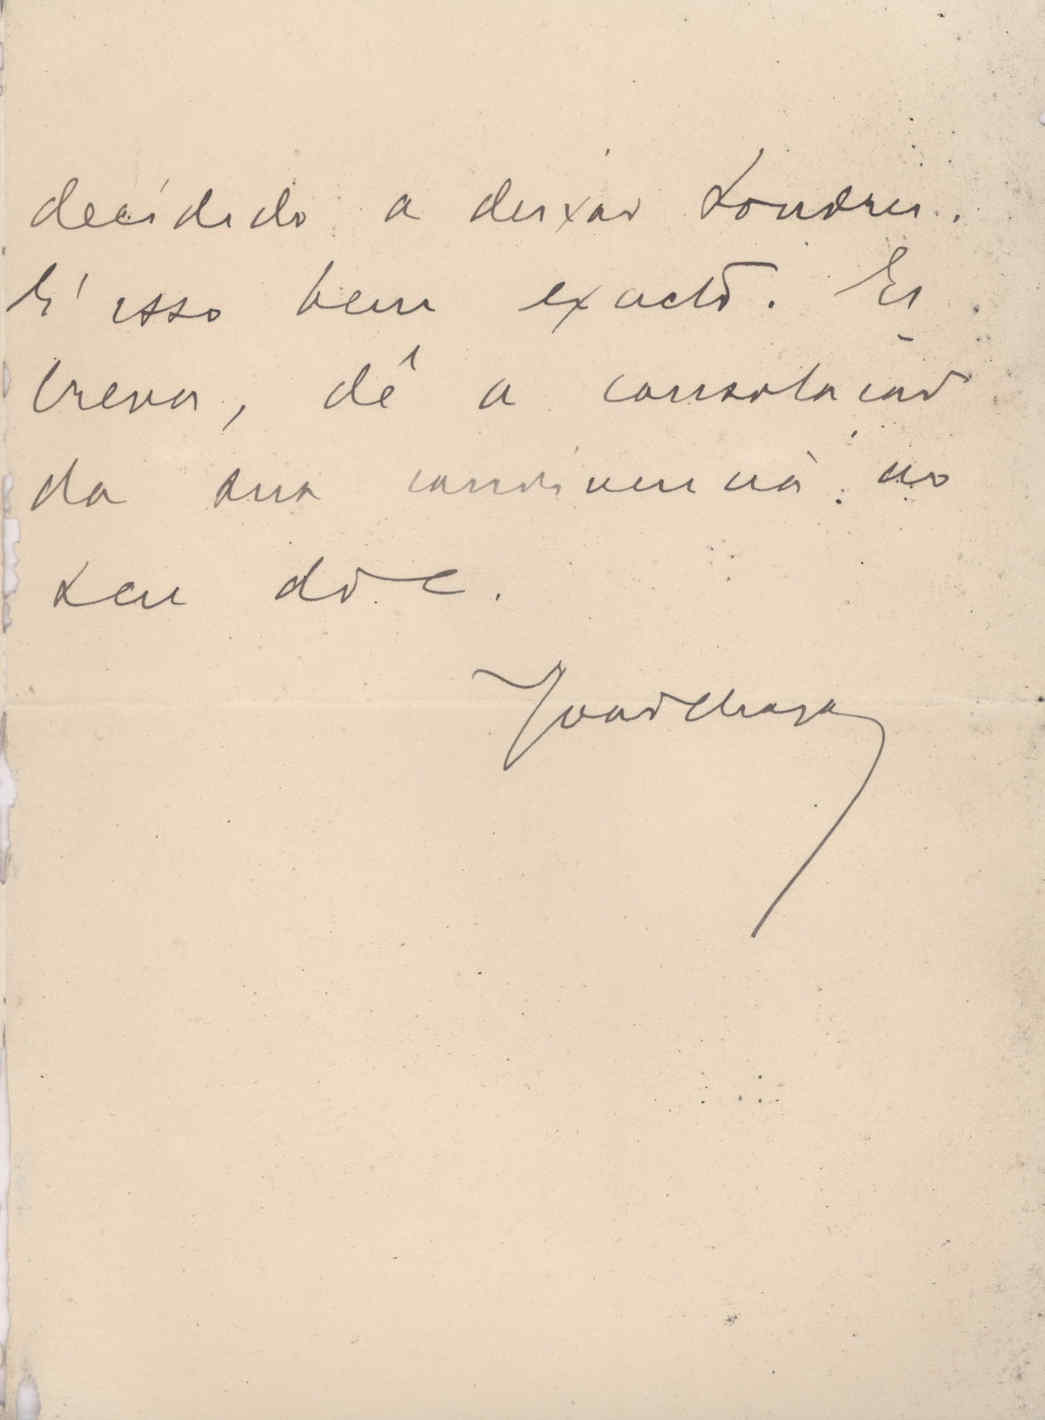 decidido a deixar Londres.
E' isso bem exacto. Es
creva, dê a consolação
da sua convivencia ao
seu do C.
João Chagas